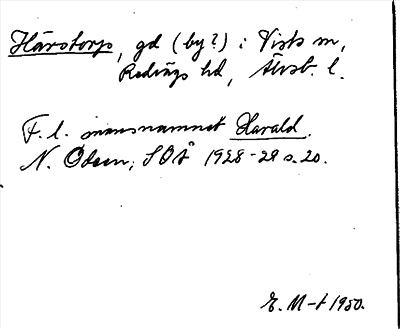 Härstorp, gd (by?) i Vists sn,
Redvägs hd, Älvsb. l.
F. l. mansnamnet Harald.
N. Odeen, SOÅ 1928-29 s. 20.
E. M-t 1950.